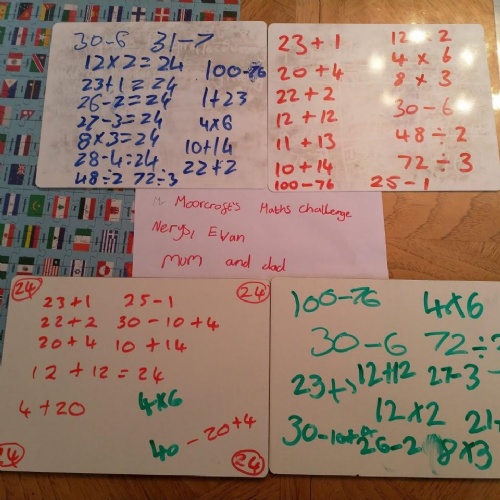 30-6 31-7
12x2=24
100-76
23+1=24
26-2=24
1+23
27-3=24
4x6
8x3=24
10+14
28-4=24
22+2
48÷2 72÷3
23+1
20+4
4x6
22+2
8x3
12+12
30-6
11+13
48÷2
10+14
72÷3
100-76
25-1
Moorcroft's Maths Challenge
Nerys, Evan
mum and dad
24
24
23+1 25-1
22+2 30-10+4
20+4 10+14
12+12=24
4+20
4x6
40-20+4
24
24
100-76 4x6
30-6 72÷
23+1 12+12 27-3
12x2
30-10+4
26-2
8x3